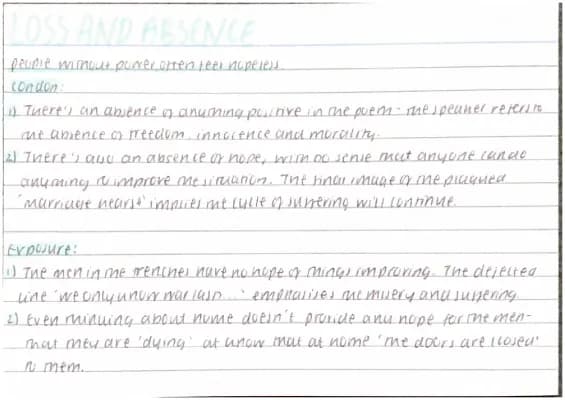 LOSS AND ABSENCE
people without power often feel hopeless.
London:
1) There's an absence of anything positive in the poem - the speaker refers to
the absence of freedom, innocence and morality.
2) There's also an absence of hope, with no sense that anyone can do
anything to improve the situation. The final image of the plagued
'marriage hearse' implies the cycle of suffering will continue.
Exposure:
1) The men in the trenches have no hope of things improving. The dejected
line 'we only know war lasts...' emphasises the misery and suffering
2) Even thinking about home doesn't provide any hope for the men-
that they are 'dying' at know that at home 'the doors are closed'
to them.